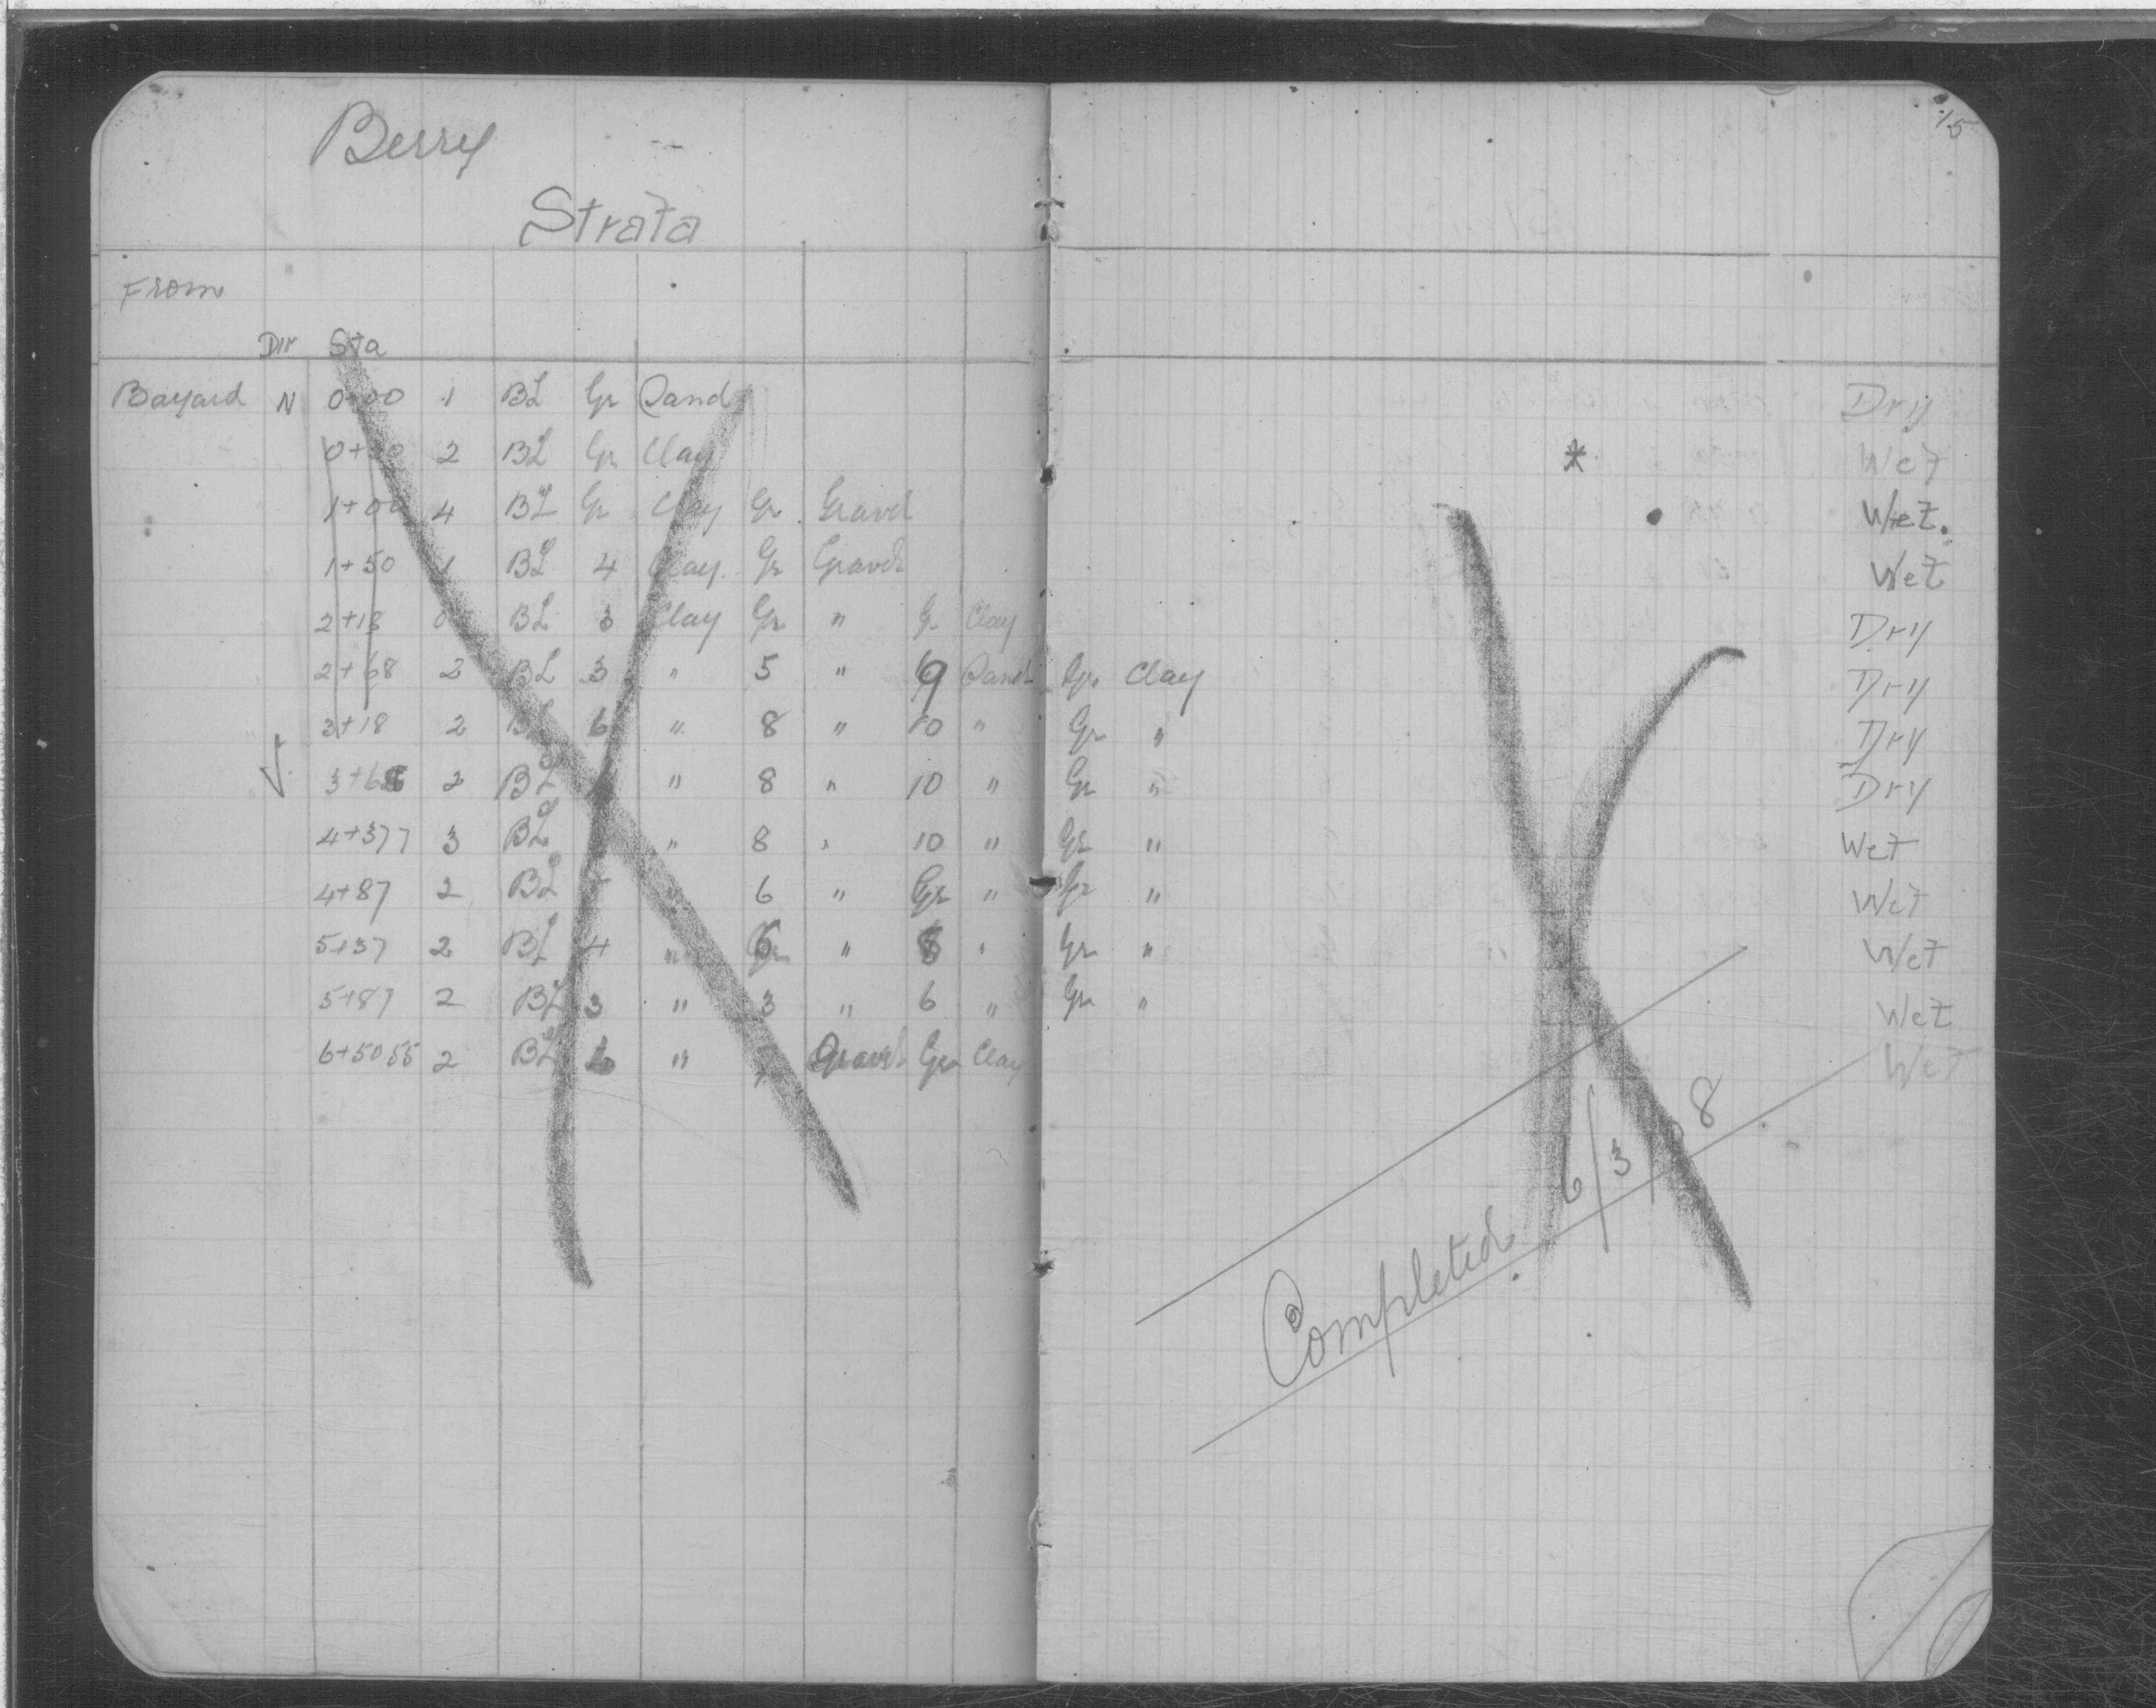 15
Berry
Strata
From
Dir Sta
Bayard N 0+00 1 BL Gr Sand Dry
2 BL Gr Clay * Wet
1+00 4 BL Gr Clay Gr Gravel Wet.
1+50 1 BL 4 Clay Gr Gravel Wet
2+18 BL 3 Clay Gr " Gr Clay Dry
2+68 2 BL 3 " 5 " 9 Sand Gr Clay Dry
3+18 2 BL 6 " 8 " 10 " Gr " Dry
3+68 2 BL " 8 " 10 " Gr " Dry
4+377 3 BL " 8 " 10 " Gr " Wet
4+87 2 BL " 6 " Gr " Gr " Wet
5+37 2 BL 4 " 6 " 8 " Gr " Wet
5+87 2 BL 3 " 3 " 6 " Gr " Wet
6+50.55 2 BL " 7 Gravel Gr Clay Wet
Completed 6/3/08